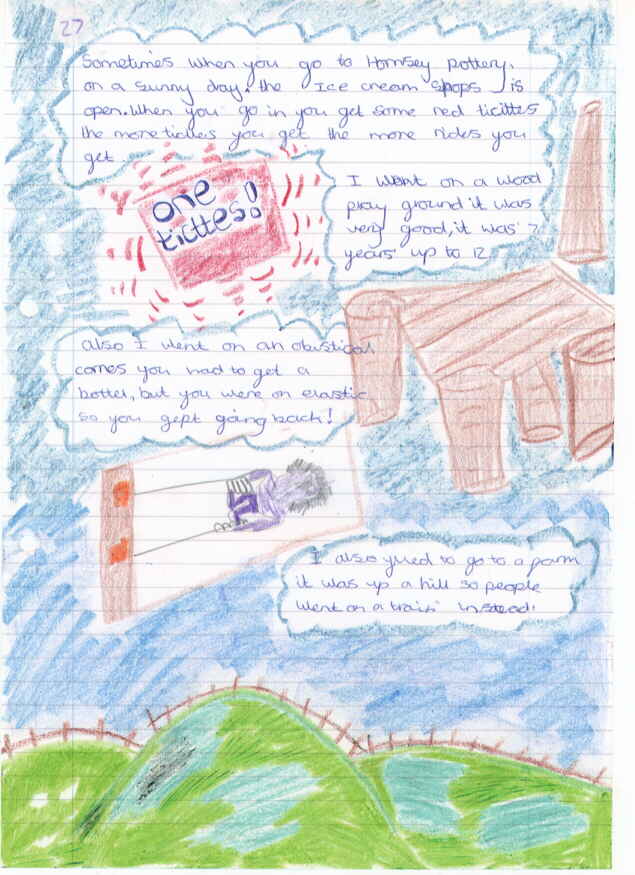 27
Sometimes when you go to Hornsey pottery.
on a sunny day. the Ice cream shops is
open. When you go in you get some red ticittes
the more tickets you get the more rides you
get.
one
ticttes!
I went on a wood
play ground it was
very good, it was 7
years up to 12
also I went on an obistical
corses you had to get a
bottel, but you were on elastic
so you gept going bach!
I also yused to go to a parm
it was up a hill so people
went on a train instead!